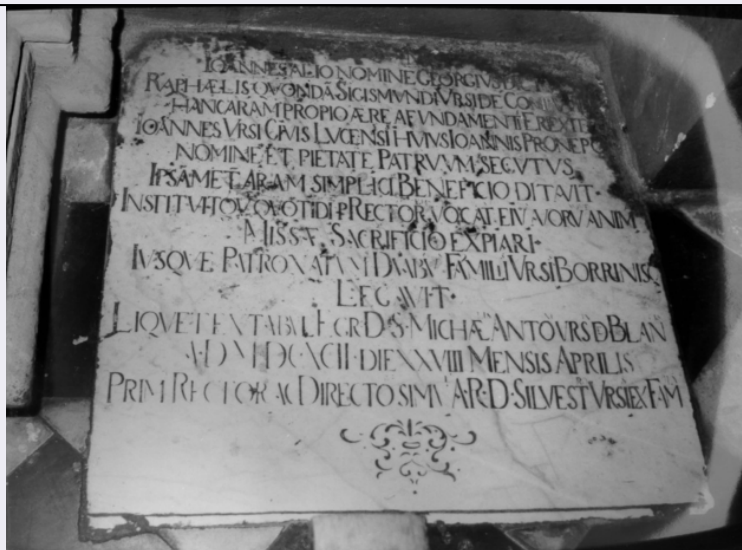 IOANNES ALIO NOMINE GEORGIVS
RAPHÆLIS QVONDÃ SIGISMVNDI VRSI DE
HANC ARAM PROPIO ÆRE A FVNDAMENTI EREXIT
IOANNES VRSI CIVIS LVCENSI HVIVS IOANNIS PRONEPO
NOMINE ET PIETATE PATRVVM SECVTVS
IPSAMET ARAM SIMPLICI BENEFICIO DITAVIT·
INSTITVITQV QVOTIDI P RECTOR VOCAT EIV VORV ANIM
MISSÆ SACRIFICIO EXPIARI·
IVSQVE PATRONATVM DVABV FAMILII VRSI BORRINISQ
LEGAVIT·
LIQVET EX TABVL EGR D S· MICHÆ ANTO VRS D BLAÑ
A·D M DC XCII· DIE XXVIII MENSIS APRILIS
PRIM RECTOR AC DIRECTO SIMV A·R·D·SILVEST VRSI EX FAM